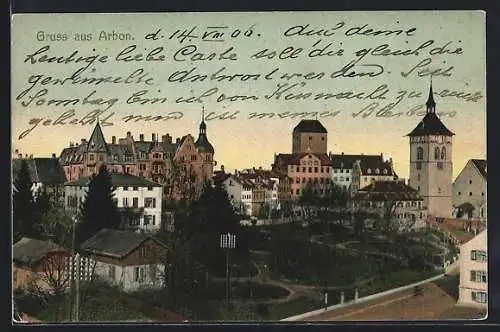 Gruss aus Arbon.
d. 14. VIII 06. Auf deine
heutige liebe Carte soll dir gleich die
gewünschte Antwort werden. Seit
Sonntag bin ich von Küsnacht zurück
gekehrt um meines